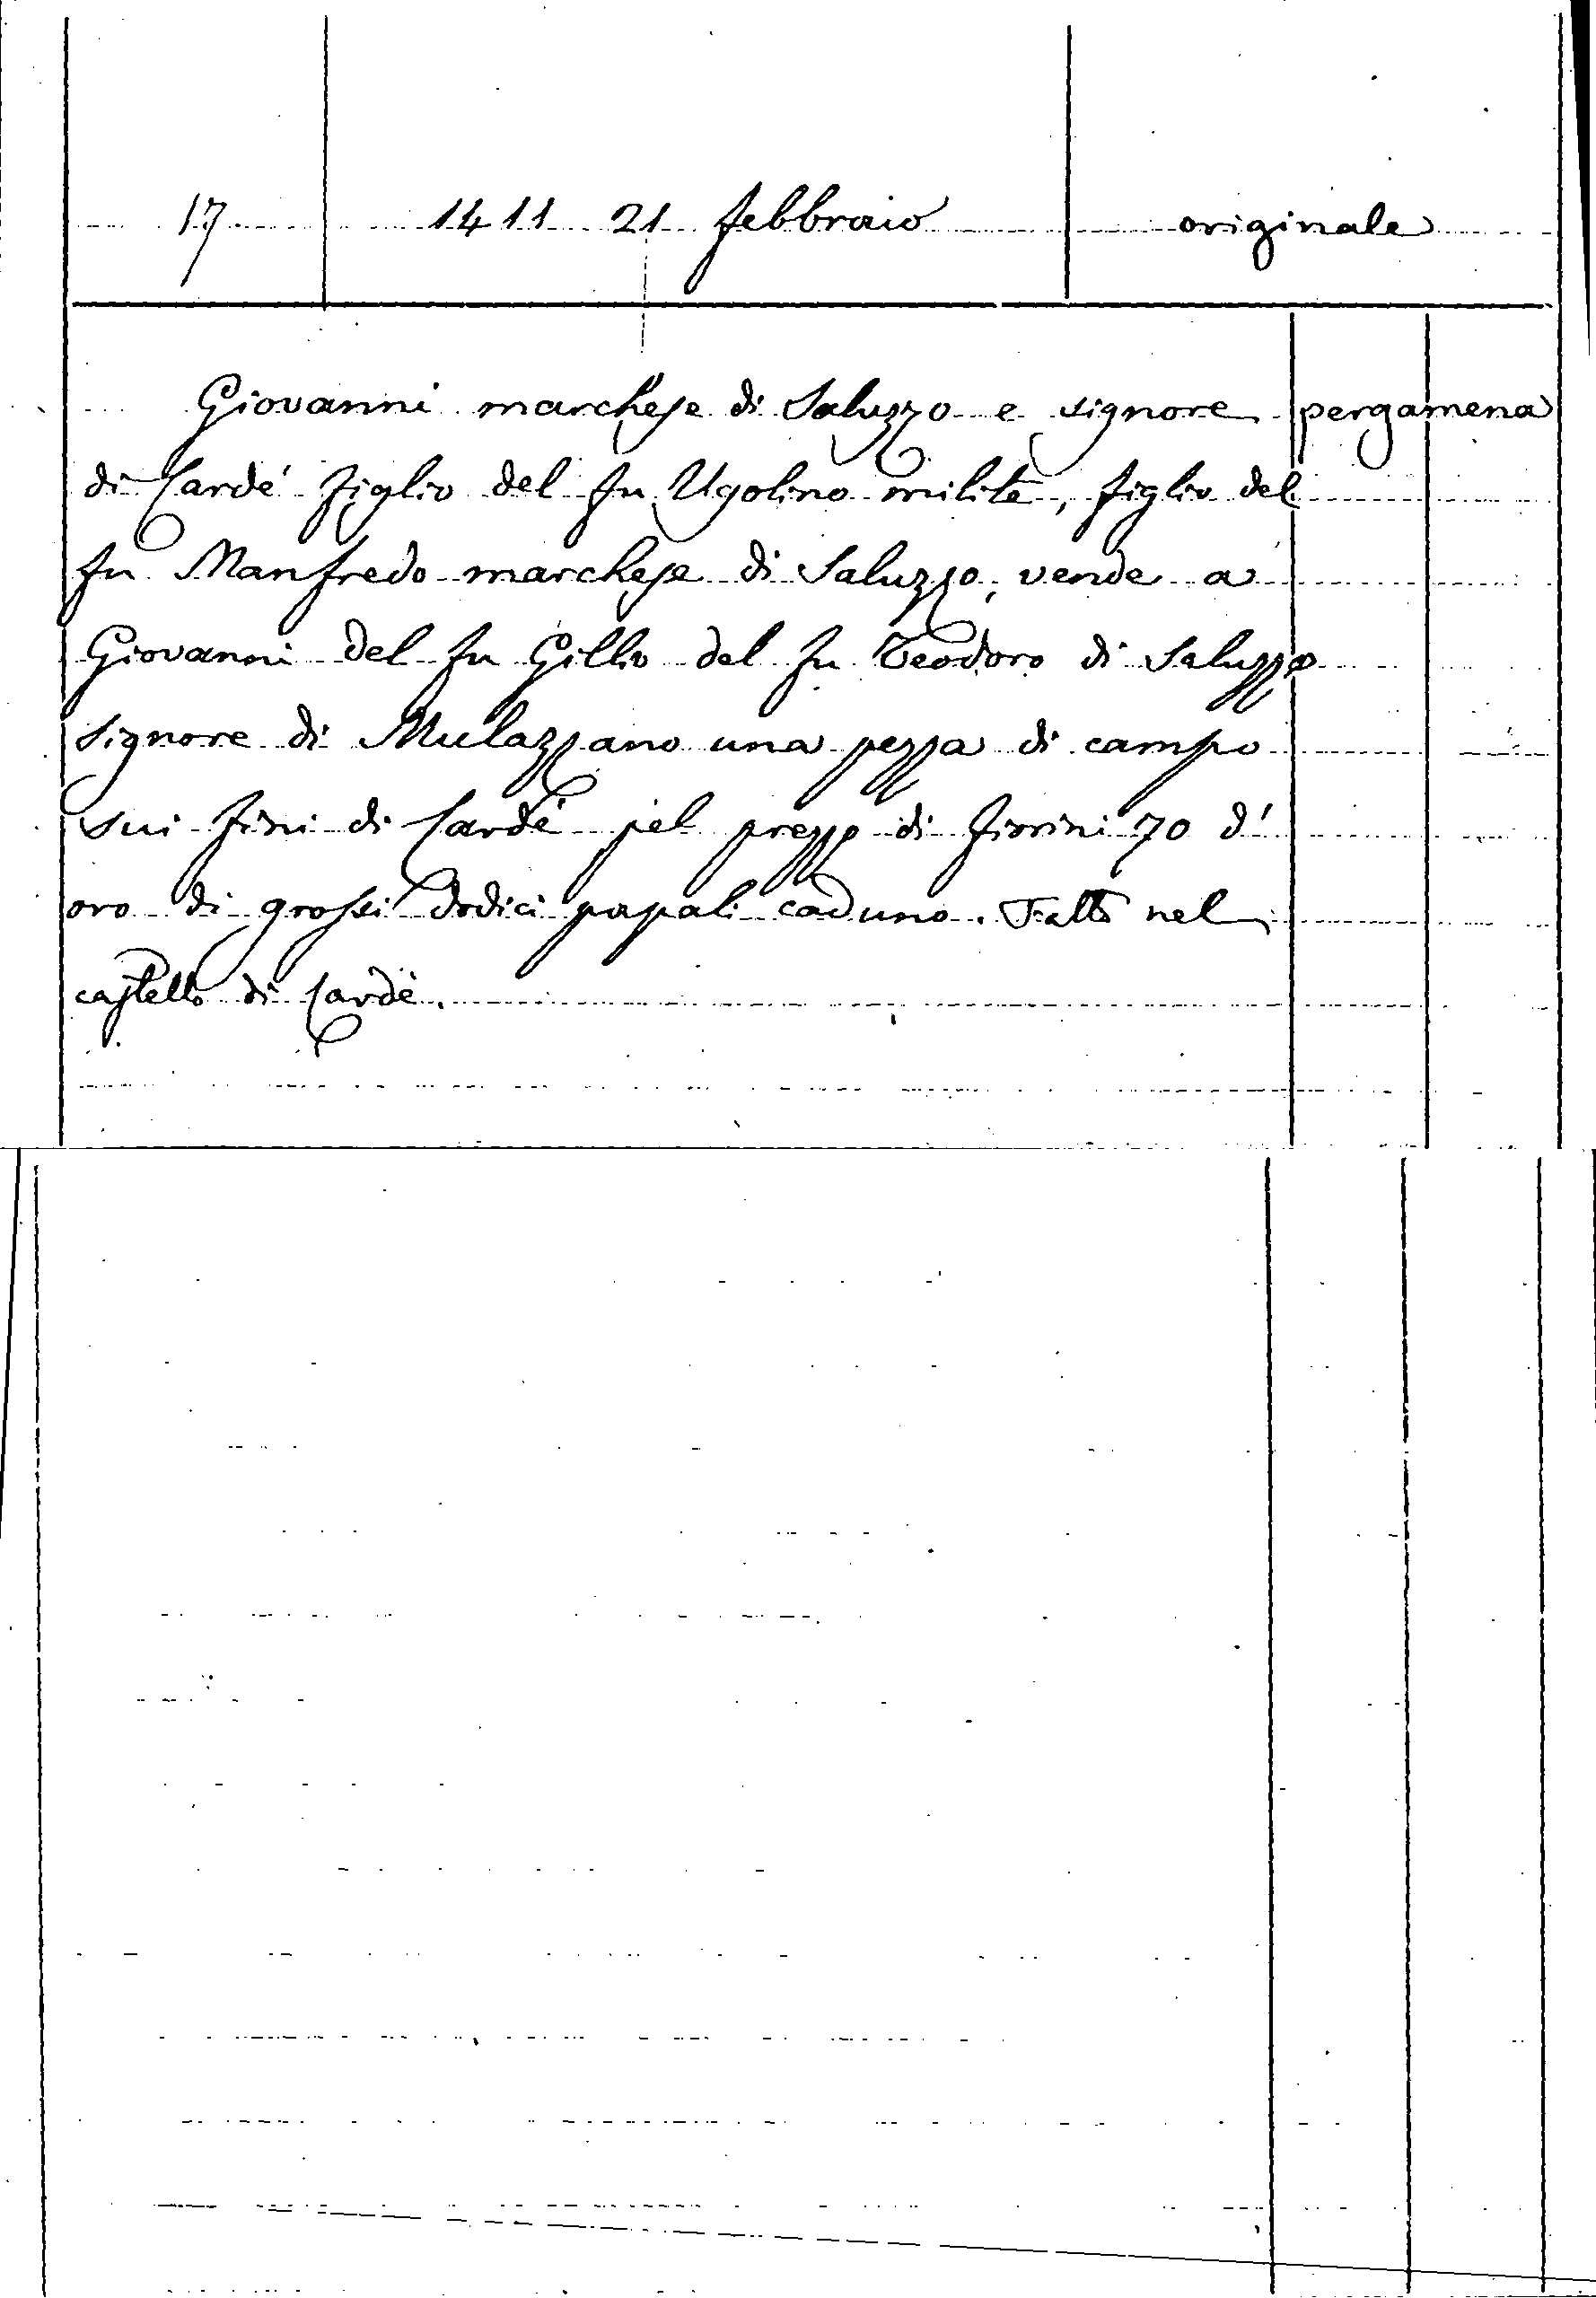 17 1411 21 febbraio originale
Giovanni marchese di Saluzzo e signore pergamena
di Cardé figlio del fu Ugolino milite, figlio del
fu Manfredo marchese di Saluzzo, vende a
Giovanni del fu Gillio del fu Teodoro di Saluzzo
signore di Mulazzano una pezza di campo
sui fini di Cardé pel prezzo di fiorini 70 d'
oro di grossi dodici papali caduno. Fatto nel
castello di Cardé.